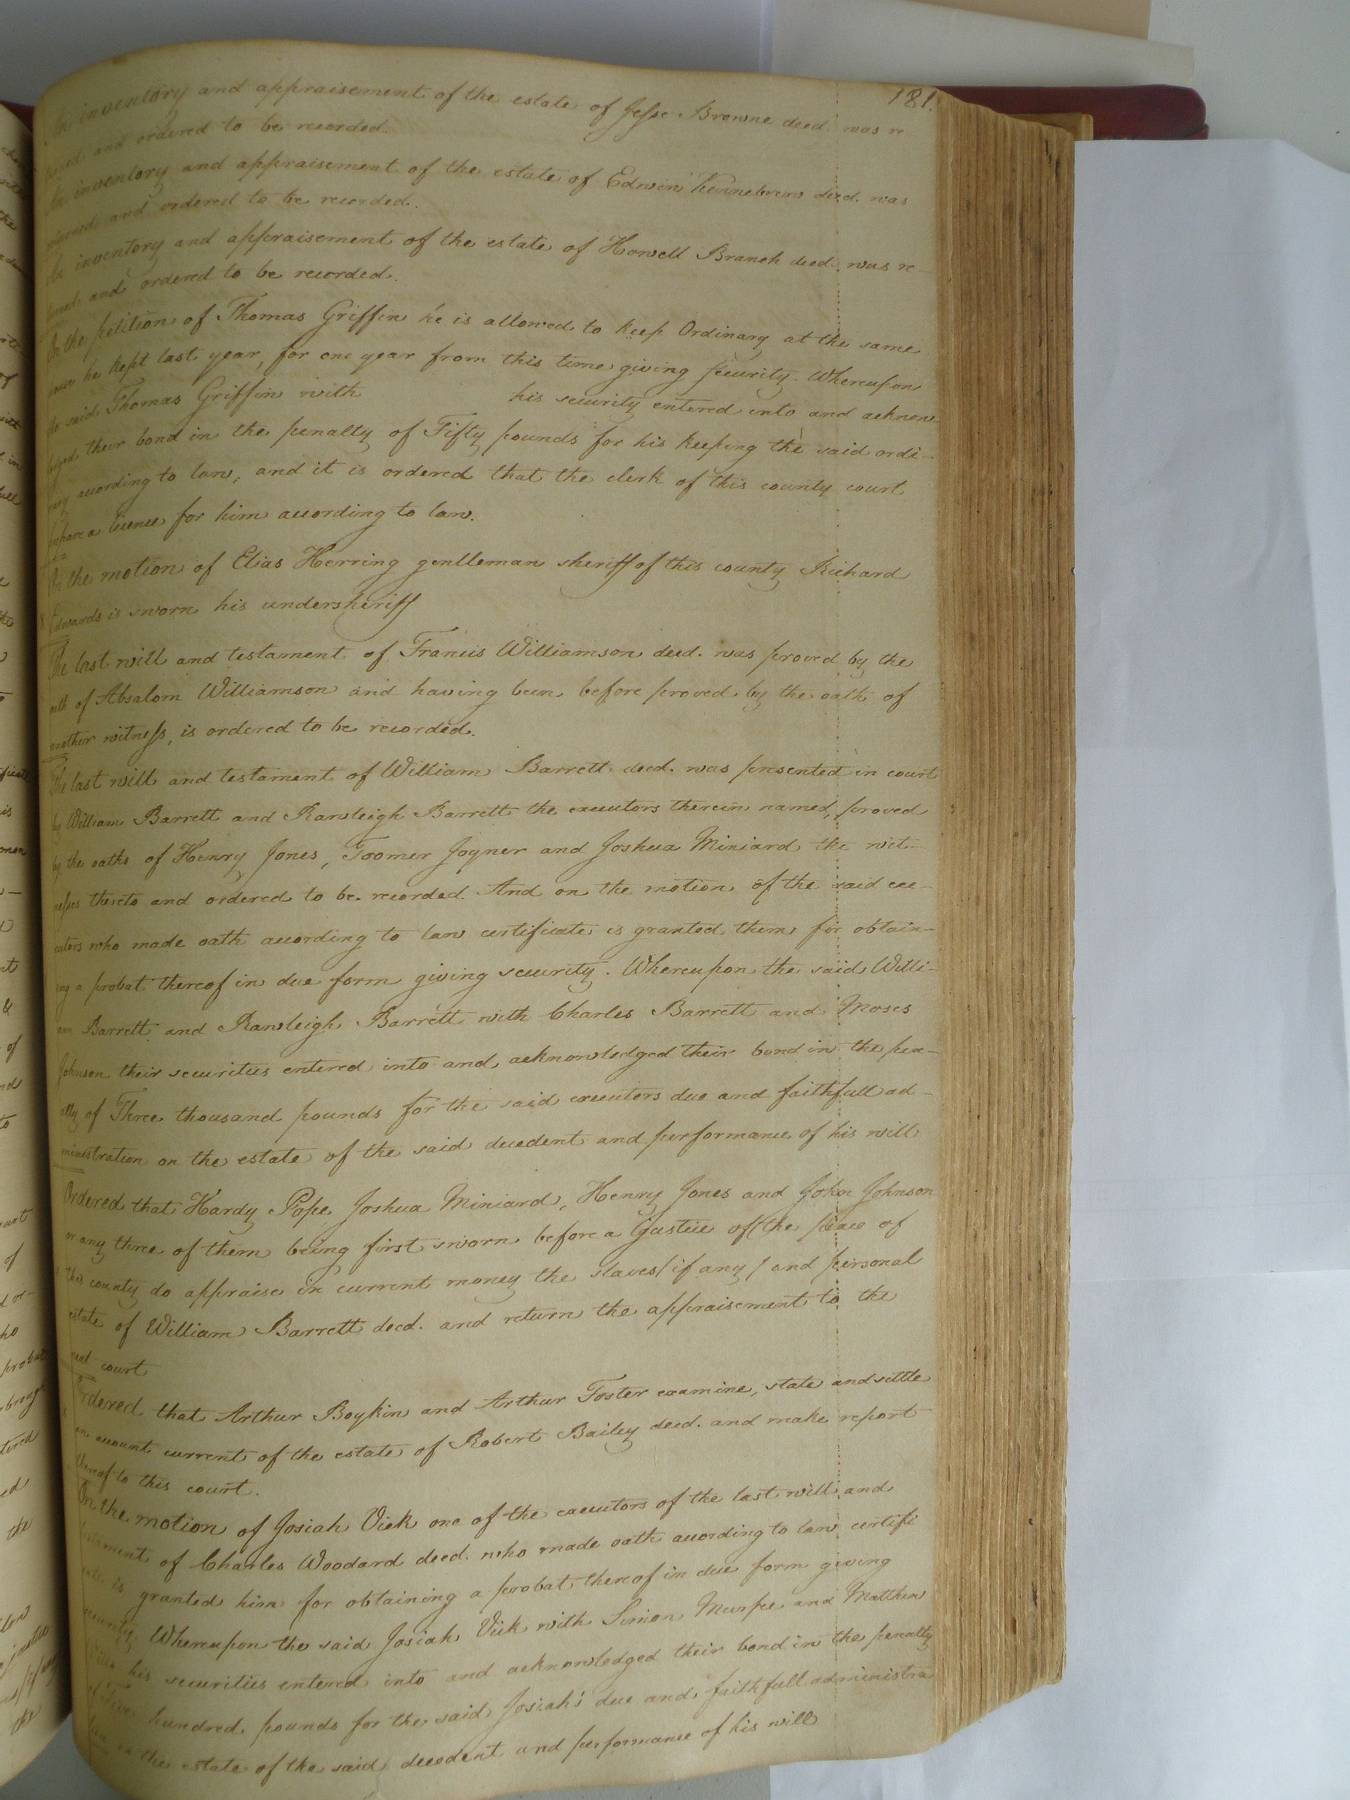 181.
An inventory and appraisement of the estate of Jesse Browne decd. was re
turned and ordered to be recorded.
An inventory and appraisement of the estate of Edwin Kennebrew decd. was
returned and ordered to be recorded.
An inventory and appraisement of the estate of Howell Branch decd. was re-
turned and ordered to be recorded.
On the petition of Thomas Griffin he is allowed to keep Ordinary at the same
house he kept last year, for one year from this time giving security. Whereupon
the said Thomas Griffin with his security entered into and acknow
ledged their bond in the penalty of Fifty pounds for his keeping the said ordi-
nary according to law, and it is ordered that the clerk of this county court
prepare a licence for him according to law.
On the motion of Elias Herring gentleman sheriff of this county Richard
Edwards is sworn his undersheriff
The last will and testament of Francis Williamson decd. was proved by the
oath of Absalom Williamson and having been before proved by the oath of
another witness, is ordered to be recorded.
The last will and testament of William Barrett decd. was presented in court
by William Barrett and Rawleigh Barrett the executors therein named, proved
by the oaths of Henry Jones, Toomer Joyner and Joshua Miniard the wit-
nesses thereto and ordered to be recorded. And on the motion of the said exe-
cutors who made oath according to law certificate is granted them for obtain-
ing a probat thereof in due form giving security. Whereupon the said Willi-
am Barrett and Rawleigh Barrett with Charles Barrett and Moses
Johnson their securities entered into and acknowledged their bond in the pen-
alty of Three thousand pounds for the said executors due and faithfull ad-
ministration on the estate of the said decedent and performance of his will
Ordered that Hardy Pope, Joshua Miniard, Henry Jones and John Johnson
or any three of them being first sworn before a Justice of the peace of
this county do appraise in current money the slaves/if any/and personal
estate of William Barrett decd. and return the appraisement to the
next court
Ordered that Arthur Boykin and Arthur Foster examine, state and settle
an account current of the estate of Robert Bailey decd. and make report
thereof to this court.
On the motion of Josiah Vick one of the executors of the last will and
testament of Charles Woodard decd. who made oath according to law certifi
cate is granted him for obtaining a probat thereof in due form giving
security. Whereupon the said Josiah Vick with Simon Murfee and Matthew
his securities entered into and acknowledged their bond in the penalty
of Five hundred pounds for the said Josiah's due and faithfull administra
tion on the estate of the said decedent and performance of his will